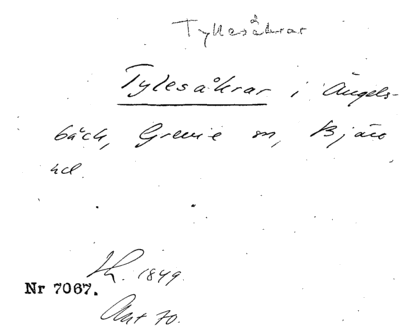 Tyllesåkrar
Tylesåkrar i Ängels-
bäck, Grevie sn, Bjäre
hd.
Lh. 1849.
Nr 7067.
Akt 70.